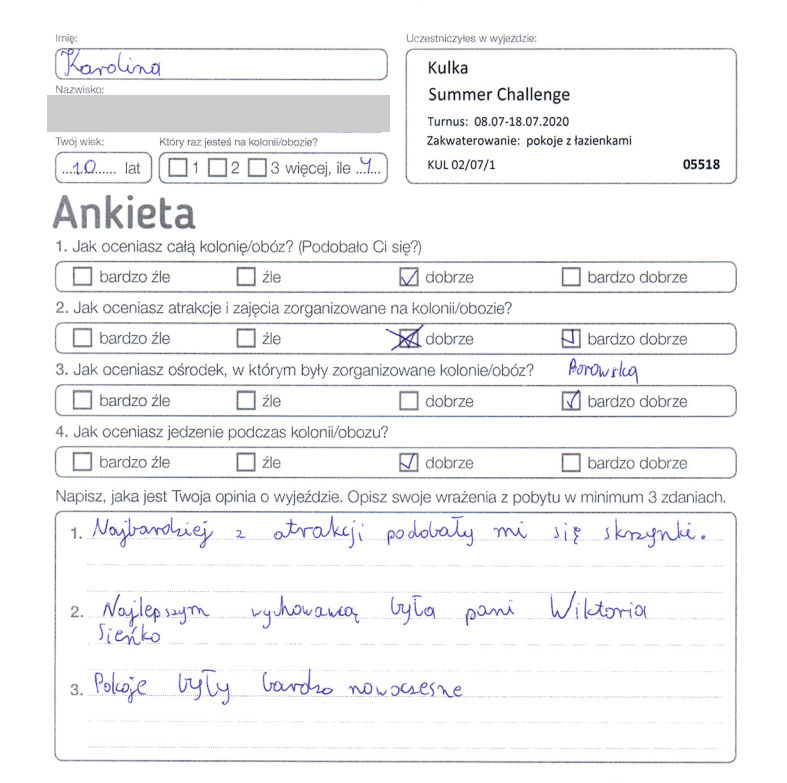 Imię:
Karolina
Nazwisko:
Uczestniczyłeś w wyjeździe:
Kulka
Summer Challenge
Turnus: 08.07-18.07.2020
Zakwaterowanie: pokoje z łazienkami
KUL 02/07/1 05518
Twój wiek: Który raz jesteś na kolonii/obozie?
10 lat 1 2 3 więcej, ile 4
Ankieta
1. Jak oceniasz całą kolonię/obóz? (Podobało Ci się?)
bardzo źle źle dobrze bardzo dobrze
2. Jak oceniasz atrakcje i zajęcia zorganizowane na kolonii/obozie?
bardzo źle źle dobrze bardzo dobrze
3. Jak oceniasz ośrodek, w którym były zorganizowane kolonie/obóz? Borowska
bardzo źle źle dobrze bardzo dobrze
4. Jak oceniasz jedzenie podczas kolonii/obozu?
bardzo źle źle dobrze bardzo dobrze
Napisz, jaka jest Twoja opinia o wyjeździe. Opisz swoje wrażenia z pobytu w minimum 3 zdaniach.
1. Najbardziej z atrakcji podobały mi się skrzynki.
2. Najlepszym wychowawcą była pani Wiktoria
Sieńko
3. Pokoje były bardzo nowoczesne